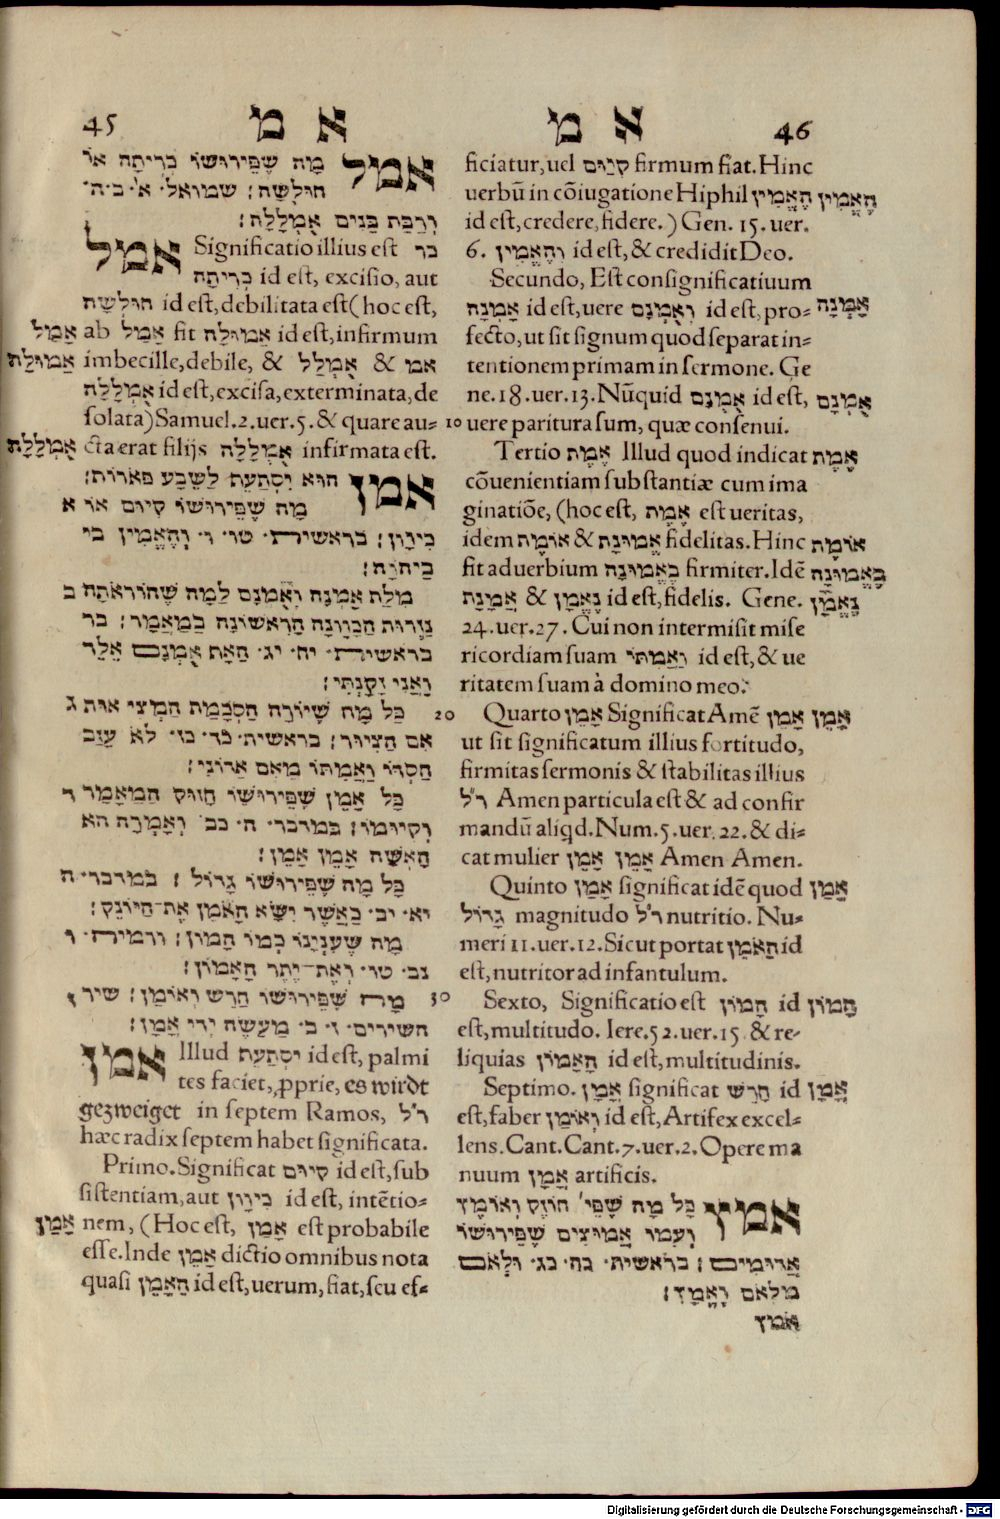 45 אמ
אמל מַה שֶּׁפֵּירוּשׁוֹ כְּרִיתָה אוֹ
חוּלְשָׁה׃ שמואל· א׳· ב· ה·
וְרַבַּת בָּנִים אֻמְלָלָה׃
אמל Significatio illius est כר
כְּרִיתָה id est, excisio, aut
חוּלְשָׁה id est, debilitata est (hoc est,
אָמַל ab אָמַל fit אֲמוּלָה id est, infirmum
אֲמוּלָה imbecille, debile, & אֻמְלָל & אמו
אֻמְלָלָה id est, excisa, exterminata, de
solata) Samuel. 2. uer. 5. & quare au⸗
אֻמְלָלָה cta erat filijs אֻמְלָלָה infirmata est.
אמן הוּא יִסְתָּעֵף לְשֶׁבַע פֹּארוֹת׃
מַה שֶּׁפֵּירוּשׁוֹ קִיּוּם אוֹ א
כִּיוּוּן׃ בראשית· טו· ו· וְהֶאֱמִין בי
בַּיהוָה׃
מִלַּת אָמְנָה וְאֻמְנָם לְמַה שֶׁהוֹרָאתָהּ ב
גְּזֵרוּת הַכַּוָּנָה הָרִאשׁוֹנָה בַּמַּאֲמָר׃ כר
בראשית· יח· יג· הַאַף אֻמְנָם אֵלֵד
וַאֲנִי זָקַנְתִּי׃
כָּל מַה שֶּׁיּוֹרֶה הַסְכָּמַת הַמְצִי אוּת ג
אִם הַצִּיּוּר׃ בראשית· כד· כז· לֹא עָזַב
חַסְדּוֹ וַאֲמִתּוֹ מֵאִם אֲדוֹנִי׃
כָּל אָמֵן שֶׁפֵּירוּשׁוֹ חִזּוּק הַמַּאֲמָר ד
וְקִיּוּמוֹ׃ במדבר· ה· כב· וְאָמְרָה הא
הָאִשָּׁה אָמֵן אָמֵן׃
כָּל מַה שֶּׁפֵּירוּשׁוֹ גָּדוֹל׃ במדבר· ה
יא· יב· כַּאֲשֶׁר יִשָּׂא הָאֹמֵן אֶת־הַיּוֹנֵק׃
מַה שֶּׁעִנְיָנוֹ כְּמוֹ הָמוֹן׃ ורמיה· ו
נב· טו· וְאֶת־יֶתֶר הָאָמוֹן׃
מַה שֶּׁפֵּירוּשׁוֹ חָרָשׁ וְאוֹמָן׃ שיר ז
השירים· ז· ב· מַעֲשֵׂה יְדֵי אָמָּן׃
אמן Illud יִסְתָּעֵף id est, palmi
tes faciet, ꝓprie, es wirdt
gezweiget in septem Ramos, ר״ל
hæc radix septem habet significata.
Primo. Significat קִיּוּם id est, sub
sistentiam, aut כִּיוּוּן id est, intẽtio⸗
אָמֵן nem, (Hoc est, אָמֵן est probabile
esse. Inde אָמֵן dictio omnibus nota
quasi הָאָמֵן id est, uerum, fiat, seu ef⸗
אמ 46
ficiatur, uel קִיּוּם firmum fiat. Hinc
uerbũ in cõiugatione Hiphil הֶאֱמִין הֶאֱמִין
id est, credere, fidere.) Gen. 15. uer.
6. וְהֶאֱמִין id est, & credidit Deo.
Secundo, Est consignificatiuum
אָמְנָה id est, uere וְאֻמְנָם id est, pro⸗ אָמְנָה
fecto, ut sit signum quod separat in⸗
tentionem primam in sermone. Ge
ne. 18. uer. 13. Nũquid אֻמְנָם id est, אֻמְנָם
10 uere paritura sum, quæ consenui.
Tertio אֱמֶת Illud quod indicat אֱמֶת
cõuenientiam substantiæ cum ima
ginatiõe, (hoc est, אֱמֶת est ueritas,
idem אוֹמֶת & אֱמוּנָה fidelitas. Hinc אוֹמֶת
fit aduerbium בֶּאֱמוּנָה firmiter. Idẽ בֶּאֱמוּנָה
אֲמָנָה & נֶאֱמָן id est, fidelis. Gene. נֶאֱמָן
24. uer. 27. Cui non intermisit mise
ricordiam suam וַאֲמִתּוֹ id est, & ue
ritatem suam à domino meo.
20 Quarto אָמֵן Significat Amẽ אָמֵן אָמֵן
ut sit significatum illius fortitudo,
firmitas sermonis & stabilitas illius
ר״ל Amen particula est & ad confir
mandũ aliqd. Num. 5. uer. 22. & di⸗
cat mulier אָמֵן אָמֵן Amen Amen.
Quinto אָמַן significat idẽ quod אָמַן
גָּדוֹל magnitudo ר״ל nutritio. Nu⸗
meri 11. uer. 12. Sicut portat הָאֹמֵן id
est, nutritor ad infantulum.
30 Sexto, Significatio est הָמוֹן id הָמוֹן
est, multitudo. Iere. 52. uer. 15 & re⸗
liquias הָאָמוֹן id est, multitudinis.
Septimo. אָמָּן significat חָרָשׁ id אָמָּן
est, faber וְאוֹמָן id est, Artifex excel⸗
lens. Cant. Cant. 7. uer. 2. Opere ma
nuum אָמָּן artificis.
אמץ כָּל מַה שֶּׁפֵּי׳ חוֹזֶק וְאוֹמֶץ
וְעִמּוֹ אֲמוּצִים שֶׁפֵּירוּשׁוֹ
אֲדוּמִּים׃ בראשית· כה· כג· וּלְאֹם
מִלְאֹם יֶאֱמָץ׃
אמץ
Digitalisierung gefördert durch die Deutsche Forschungsgemeinschaft - DFG